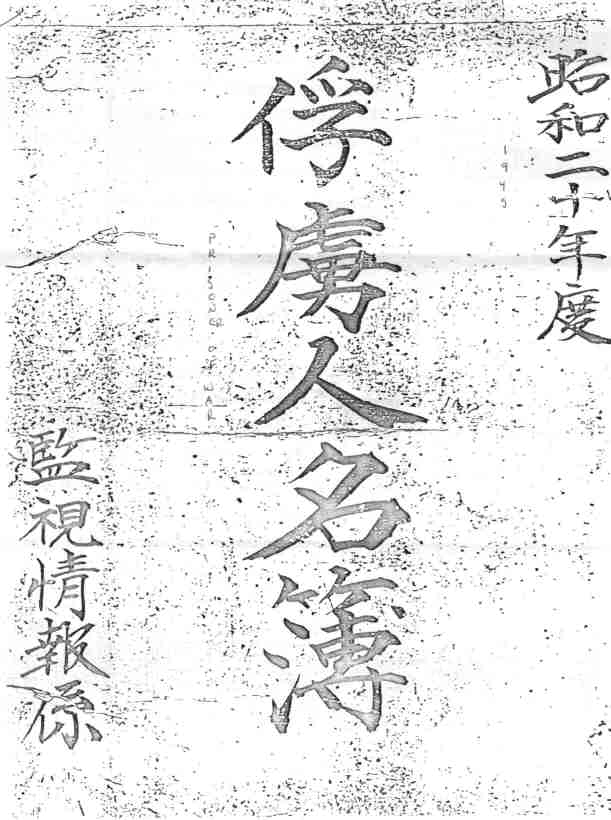 昭和二十年度
1945
俘虜人名簿
PRISONER OF WAR
監視情報係